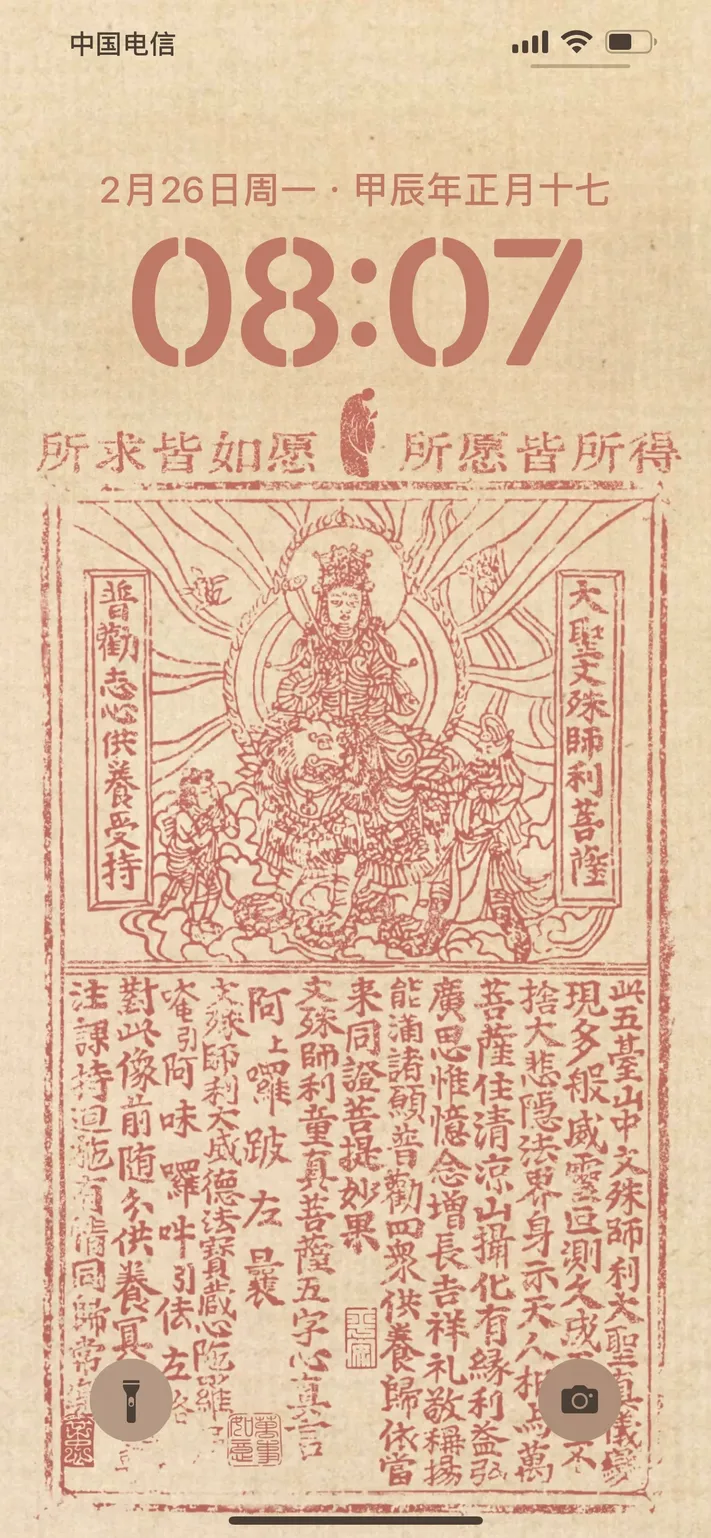 中国电信
2月26日周一 · 甲辰年正月十七
08:07
所求皆如愿 所愿皆所得
大聖文殊師利菩薩
普勸志心供養受持
此五臺山中文殊師利大聖真儀變
現多般威靈叵測久成不
捨大悲隐法界身示天人相与萬
菩薩住清凉山攝化有緣利益弘
廣思惟憶念增長吉祥礼敬稱揚
能滿諸願普勸四衆供養歸依當
来同證菩提妙果
文殊師利童真菩薩五字心真言
阿上囉跛左曩
文殊師利大威德法寶藏心陁羅
唵引阿味囉吽引佉左
對此像前随分供養冥
注課持迴施有情同歸常
萬事如意